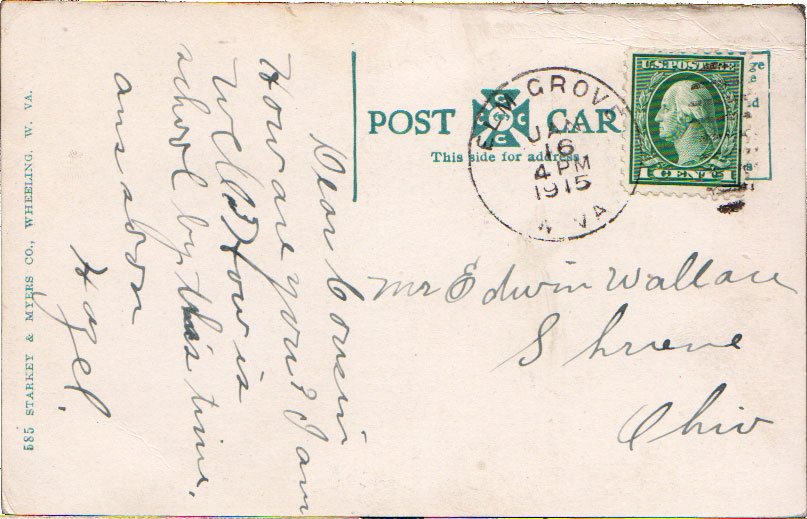 POST CARD
This side for address
ELM GROVE
JAN
16
4 PM
1915
W VA
U.S. POSTAGE
1 CENTS 1
Mr Edwin Wallace
Shriene
Ohio
Dear Cousin
How are you? I am
Well? How is
school by this time.
ans soon
Hazel.
585 STARKEY & MYERS CO., WHEELING, W. VA.